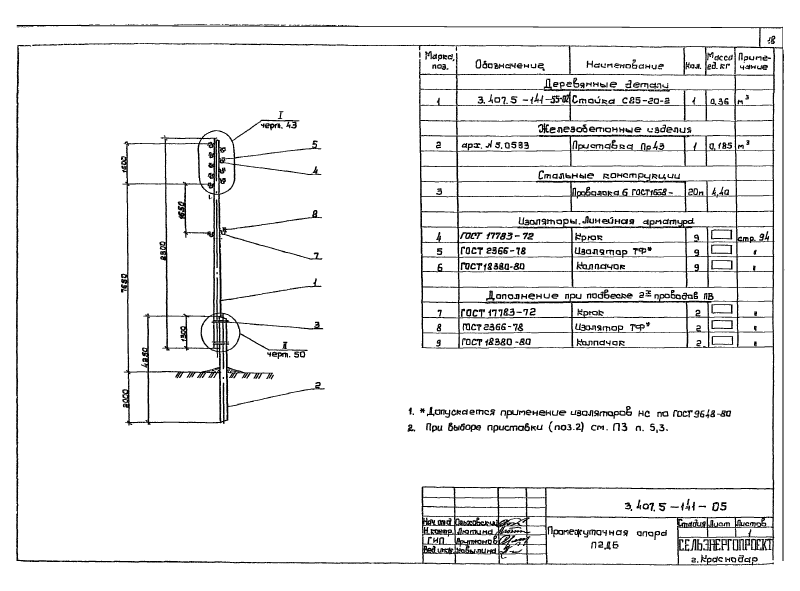 18
Марка, поз. Обозначение Наименование Кол. Масса ед. кг Примечание
Деревянные детали
1 3.407.5-141-55-02 Стойка С85-20-2 1 0,36 м³
Железобетонные изделия
2 арх. №5.0533 Приставка Пр43 1 0,185 м³
Стальные конструкции
3 Проволока 6 ГОСТ1668- 20м 4,40
Изоляторы. Линейная арматура
4 ГОСТ 17783-72 Крюк 9 стр. 94
5 ГОСТ 2366-78 Изолятор ТФ* 9 "
6 ГОСТ18380-80 Колпачок 9 "
Дополнение при подвеске 2х проводов ПВ
7 ГОСТ 17783-72 Крюк 2 "
8 ГОСТ 2366-78 Изолятор ТФ* 2 "
9 ГОСТ 18380-80 Колпачок 2 "
I
черт. 43
5
4
8
7
1
3
II
черт. 50
2
1600
1650
8300
7650
1300
4250
2000
1. * Допускается применение изоляторов НС по ГОСТ 9648-80
2. При выборе приставки (поз.2) см. ПЗ п. 5,3.
3.407.5-141-05
Нач. отд
Н. контр. Лютина
ГИП Арутюнов
Вед. инж. Ковылина
Промежуточная опора
П2ДБ
Стадия Лист Листов
1
СЕЛЬЭНЕРГОПРОЕКТ
г. Краснодар